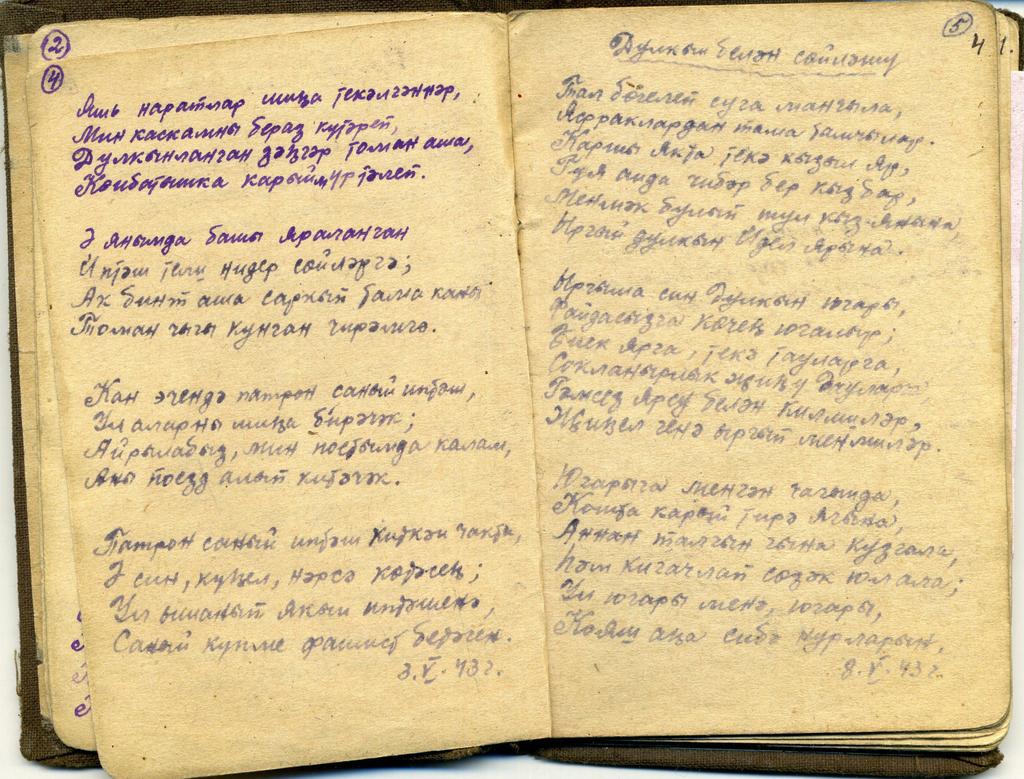 2
4
Яшь наратлар миңа текәлгәннәр,
Мин каскамны бераз күтәреп,
Дулкынланган зәңгәр томан аша,
Көнбатышка карыйм, үртәлеп.
Ә янымда башы яраланган
Иптәш тели нидер сөйләргә;
Ак бинт аша саркып тама каны
Томан чыгы кунган чирәмгә.
Кан эчендә патрон саный иптәш,
Ул аларны миңа бирәчәк;
Айрылабыз, мин постымда калам,
Аны поезд алып китәчәк.
Патрон саный иптәш киткән чакта,
Ә син, күңел, нәрсә көтәсең;
Ул ышанып якын иптәшенә,
Саный күпме фашист бетәсен.
3.V.43 г.
5
4 1.
Дулкын белән сөйләшү
Тал бөгелеп суга манчыла,
Яфраклардан тама тамчылар.
Каршы якта текә кызыл яр,
Гүя анда чибәр бер кыз бар,
Менмәк булып шул кыз янына,
Ыргый дулкын Идел ярына.
Ыргыма син дулкын югары,
Файдасызга көчең югалыр;
Биек ярга, текә тауларга,
Сокланырлык җиңү даулар
Гамьсез ярсу белән килмиләр,
Җиңел генә ыргып менмиләр.
Югарыга менгән чагында,
Кошта карый тирә ягына,
Аннан талгын гына кузгала,
Һәм кигачлап сөзәк юл ала;
Ул югары менә, югары,
Кояш аңа сибә нурларын.
8.V.43 г.